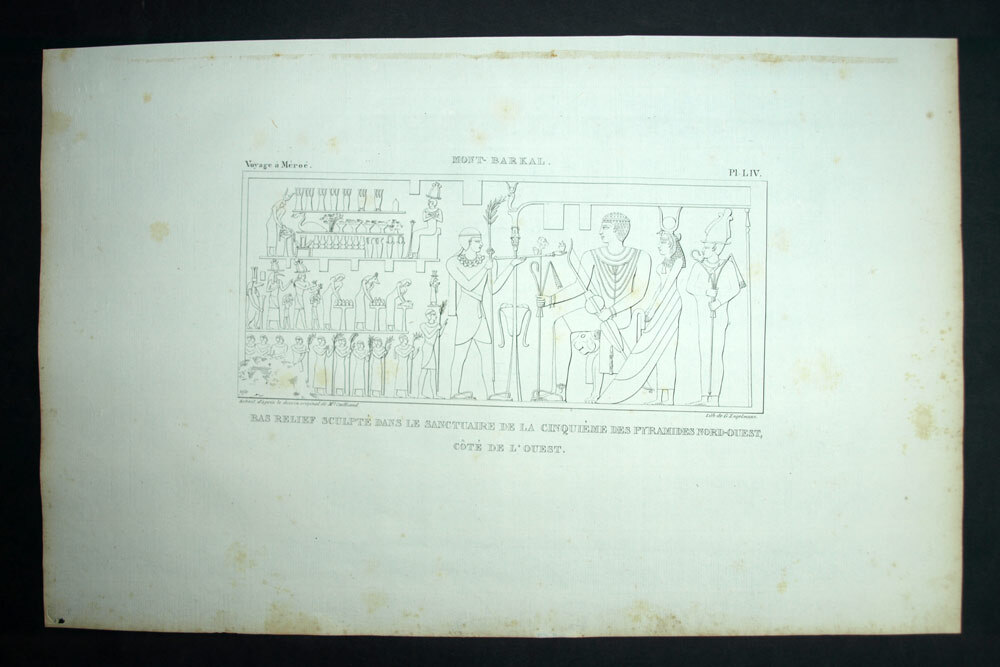 Voyage à Méroé.
MONT-BARKAL.
Pl. LIV.
d'après le dessin original de Mr. Cailliaud
Lith. de G. Engelmann.
BAS RELIEF SCULPTÉ DANS LE SANCTUAIRE DE LA CINQUIÈME DES PYRAMIDES NORD-OUEST,
CÔTÉ DE L'OUEST.